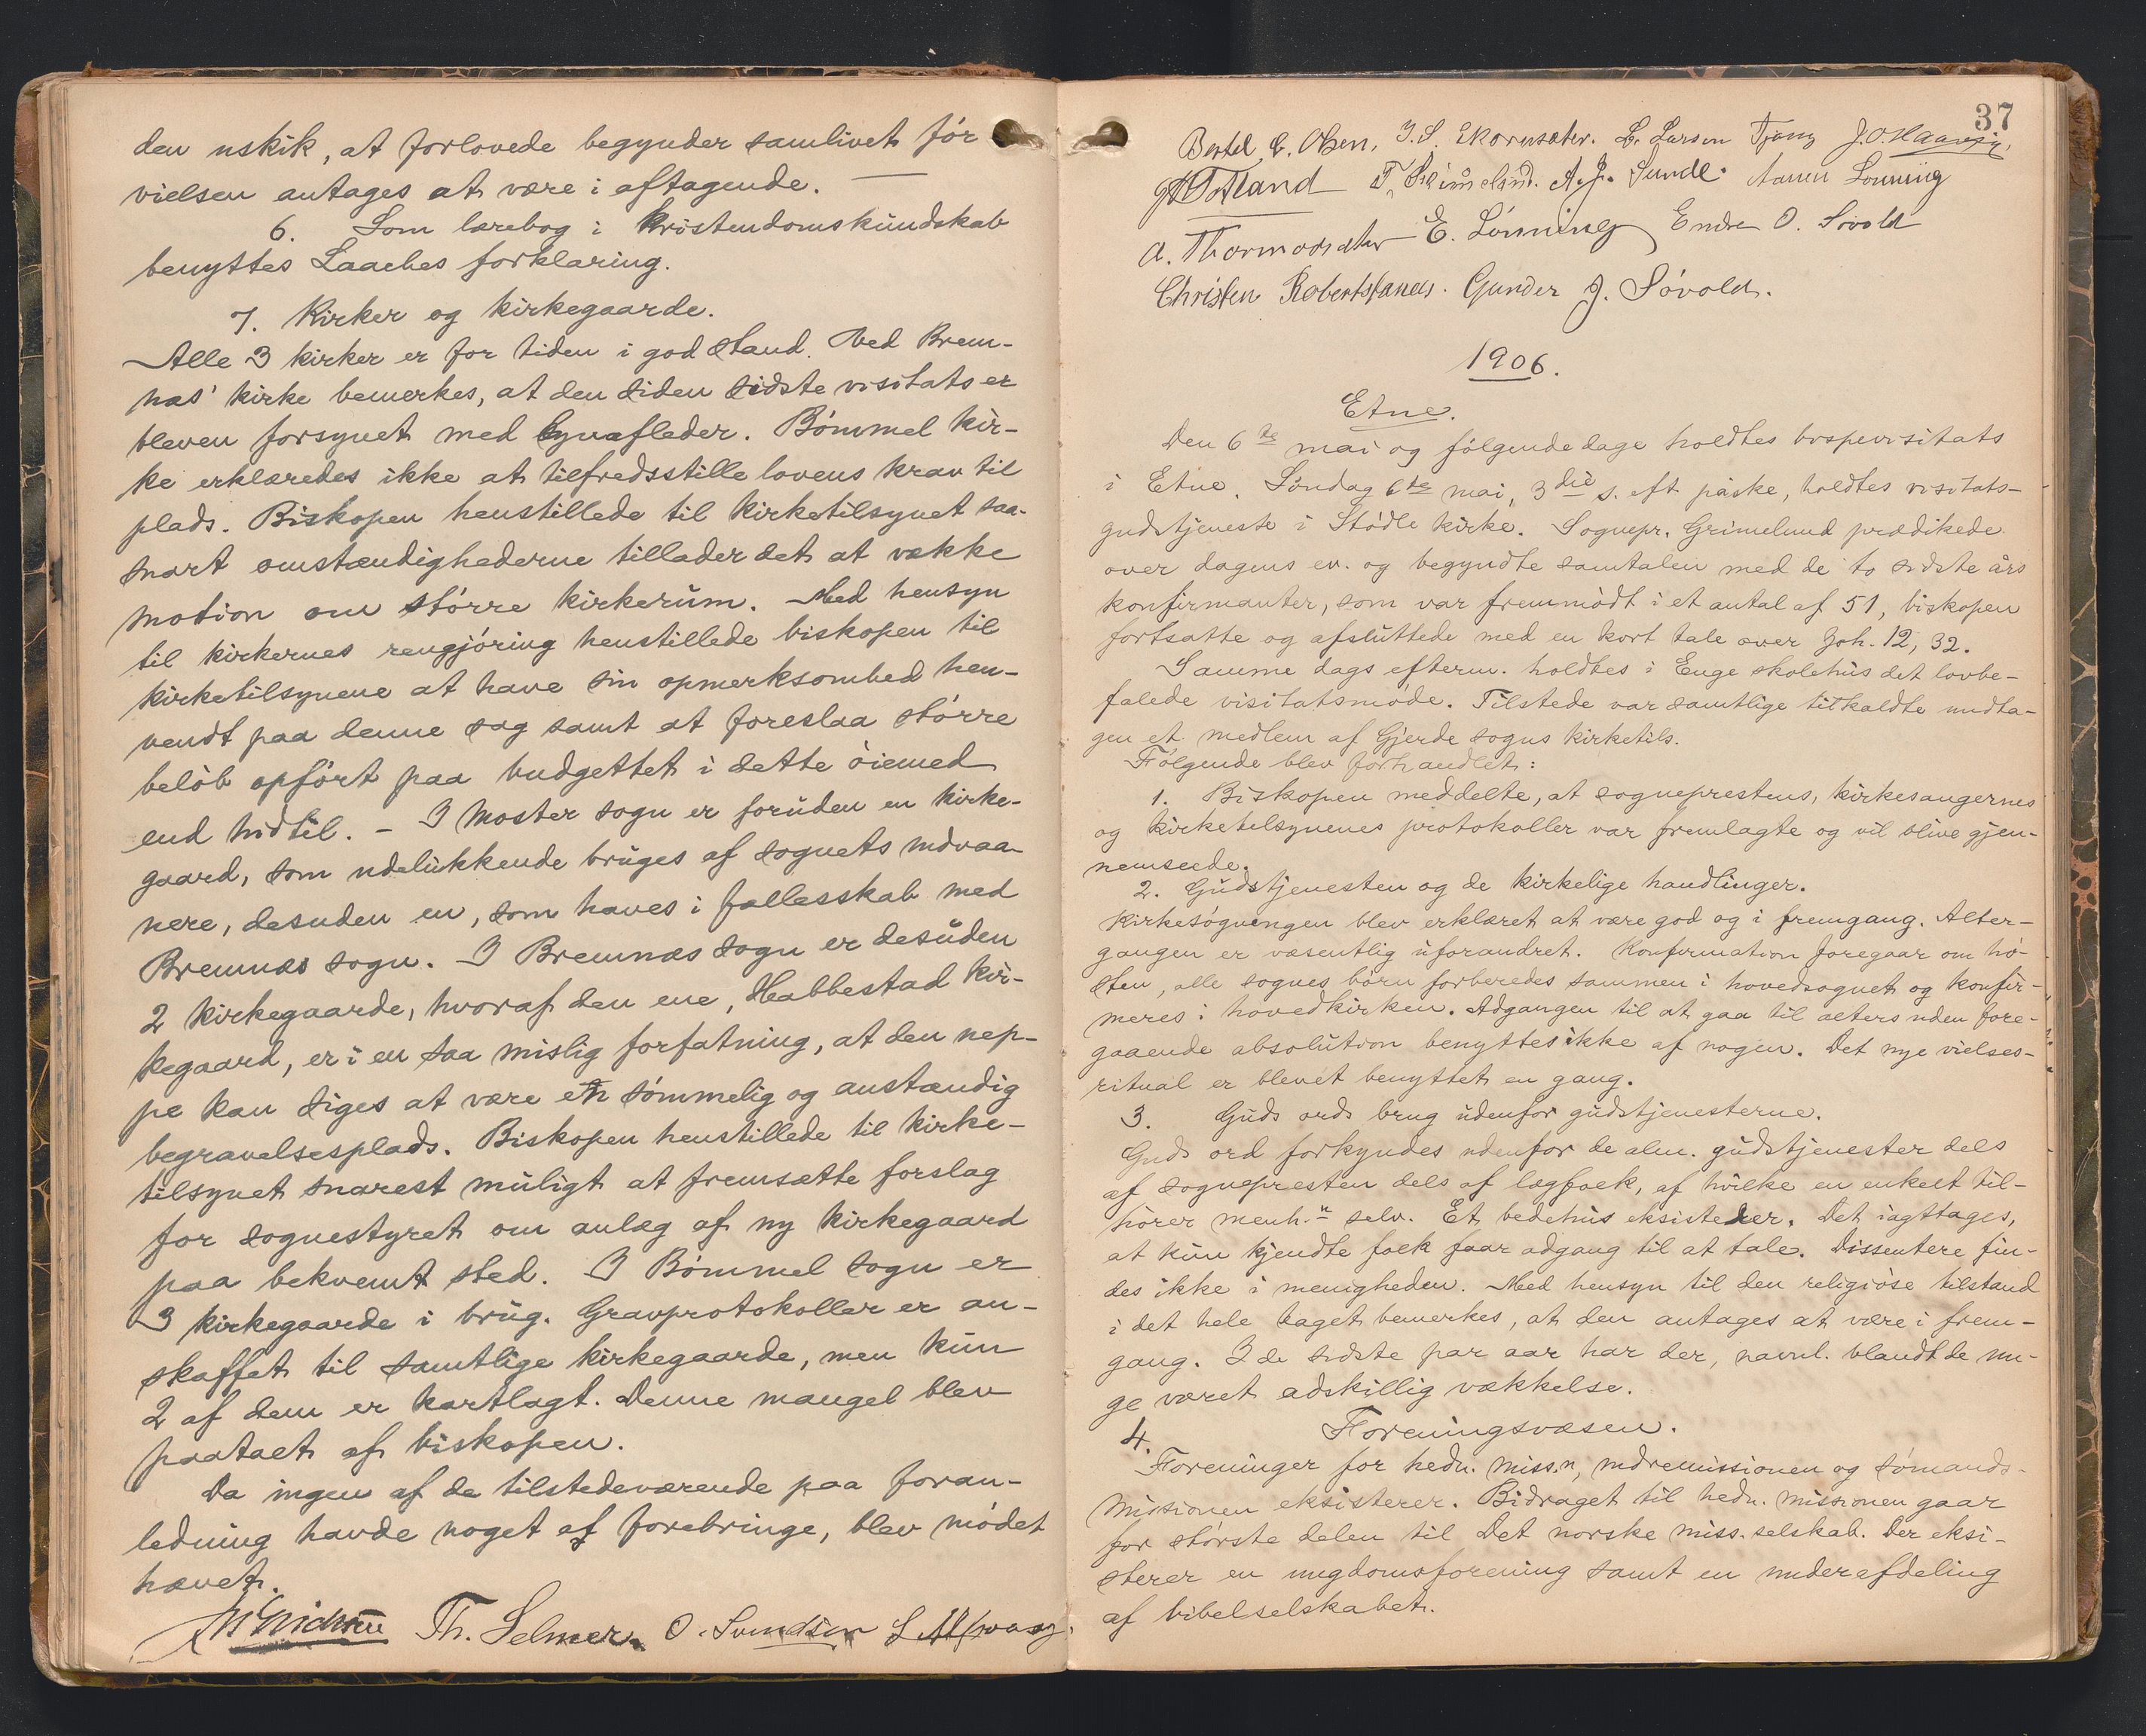 den uskik, at forlovede begynder samlivet før
vielsen antages at være i aftagende. —
6. Som lærebog i kristendomskundskab
benyttes Laaches forklaring.
7. Kirker og kirkegaarde.
Alle 3 kirker er for tiden i god stand. Ved Brem-
næs' kirke bemerkes, at den siden sidste visitats er
bleven forsynet med lynafleder. Bømmel kir-
ke erklæredes ikke at tilfredsstille lovens krav til
plads. Biskopen henstillede til kirketilsynet saa-
snart omstændighederne tillader det at vække
motion om større kirkerum. Med hensyn
til kirkernes rengjøring henstillede biskopen til
kirketilsynene at have sin opmerksomhed hen-
vendt paa denne sag samt at foreslaa større
beløb opført paa budgettet i dette øiemed
end hidtil. – I Moster sogn er foruden en kirke-
gaard, som udelukkende bruges af sognets indvaa-
nere, desuden en, som haves i fællesskab med
Bremnæs sogn. I Bremnæs sogn er desuden
2 kirkegaarde, hvoraf den ene, Habbestad kir-
kegaard, er i en saa mislig forfatning, at den nep-
pe kan siges at være en sømmelig og anstændig
begravelsesplads. Biskopen henstillede til kirke-
tilsynet snarest muligt at fremsætte forslag
for sognestyret om anlæg af ny kirkegaard
paa bekvemt sted. I Bømmel sogn er
3 kirkegaarde i brug. Gravprotokoller er an-
skaffet til samtlige kirkegaarde, men kun
2 af dem er kartlagt. Denne mangel blev
paatalt af biskopen.
Da ingen af de tilstedeværende paa foran-
ledning havde noget at forebringe, blev mødet
hævet.
Th. Selmer. O. Svendsen
37
Bertel E. Olsen, J. S. Skornsæter. L. Larsen Tjong J. O. Haavig,
Totland A. J. Sunde. Aamu Lønning
A. Thormodsæter E. Lønning Endre O. Søvold
Christen Robertstanes. Gunder J. Søvold.
1906.
Etne.
Den 6te mai og følgende dage holdtes bispevisitats
i Etne. Søndag 6te mai, 3die s. eft påske, holdtes visitats-
gudstjeneste i Stødle kirke. Sognepr. Grimelund prædikede
over dagens ev. og begyndte samtalen med de to sidste års
konfirmanter, som var fremmødt i et antal af 51, biskopen
fortsatte og afsluttede med en kort tale over Joh. 12, 32.
Samme dags efterm. holdtes i Enge skolehus det lovbe-
falede visitatsmøde. Tilstede var samtlige tilkaldte undta-
gen et medlem af Gjerde sogns kirketils.
Følgende blev forhandlet:
1. Biskopen meddelte, at sogneprestens, kirkesangernes
og kirketilsynenes protokoller var fremlagte og vil blive gjen-
nemseede.
2. Gudstjenesten og de kirkelige handlinger.
Kirkesøgningen blev erklæret at være god og i fremgang. Alter-
gangen er væsentlig uforandret. Konfirmation foregaar om hø-
sten, alle sognes børn forberedes sammen i hovedsognet og konfir-
meres i hovedkirken. Adgangen til at gaa til alters uden fore-
gaaende absolution benyttes ikke af nogen. Det nye vielses-
ritual er blevet benyttet en gang.
3. Guds ords brug udenfor gudstjenesterne.
Guds ord forkyndes udenfor de alm. gudstjenester dels
af sognepresten dels af lægfolk, af hvilke en enkelt til-
hører menh.n selv. Et bedehus eksisterer. Det iagttages,
at kun kjendte folk faar adgang til at tale. Dissentere fin-
des ikke i menigheden. Med hensyn til den religiøse tilstand
i det hele taget bemerkes, at den antages at være i frem-
gang. I de sidste par aar har der, navnl. blandt de un-
ge været adskillig vækkelse.
4. Foreningsvæsen.
Foreninger for hedn. miss.n, indremissionen og sømands-
missionen eksisterer. Bidraget til hedn. missionen gaar
for største delen til Det norske miss. selskab. Der eksi-
sterer en ungdomsforening samt en underafdeling
af bibelselskabet.